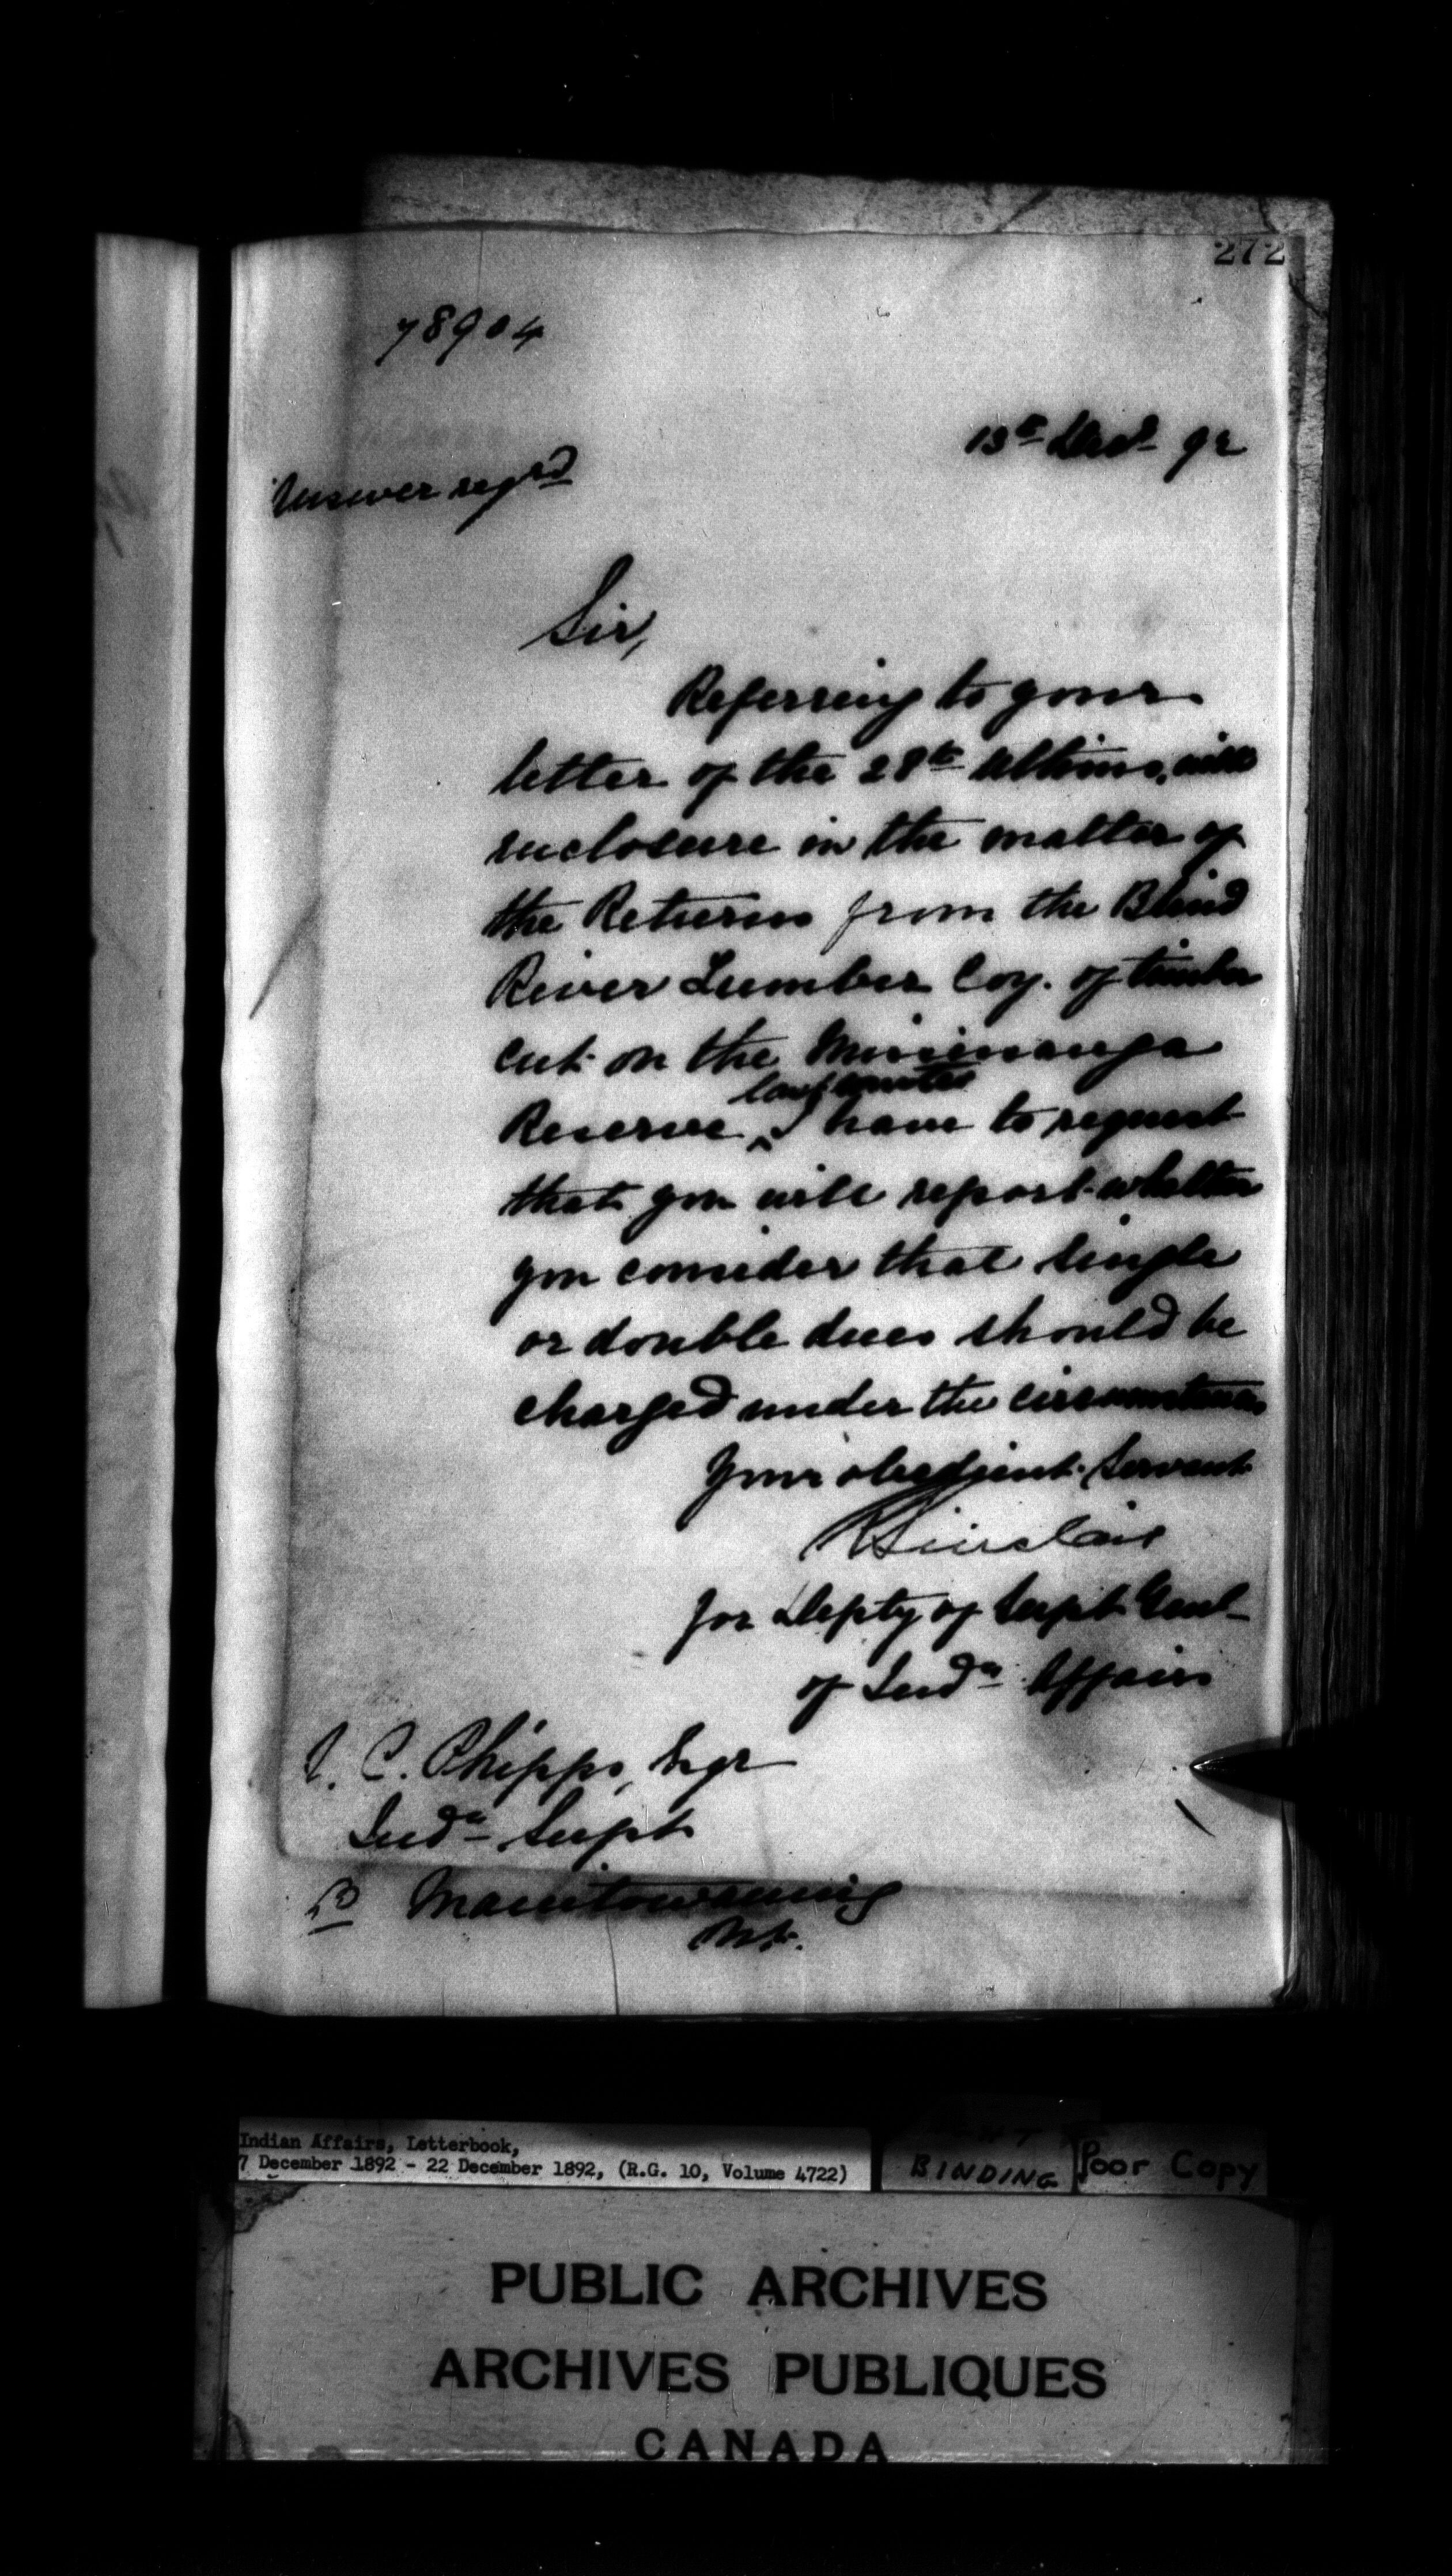 272
78904
13th Decr 92
Answer reqrd
Sir,
Referring to your
letter of the 28th Ultimo, with
enclosure in the matter of
the Returns from the Blind
River Lumber Coy. of timber
cut on the Mississauga
Reserve I have to request
that you will report whether
you consider that single
or double dues should be
charged under the circumstances
Your obedient Servant
R Sinclair
for Depty of Supt Genl
of Indn Affairs
J. C. Phipps, Esqr
Indn Supt
Manitowaning
Ont.
Indian Affairs, Letterbook,
7 December 1892 - 22 December 1892, (R.G. 10, Volume 4722)
BINDING
Poor Copy
PUBLIC ARCHIVES
ARCHIVES PUBLIQUES
CANADA